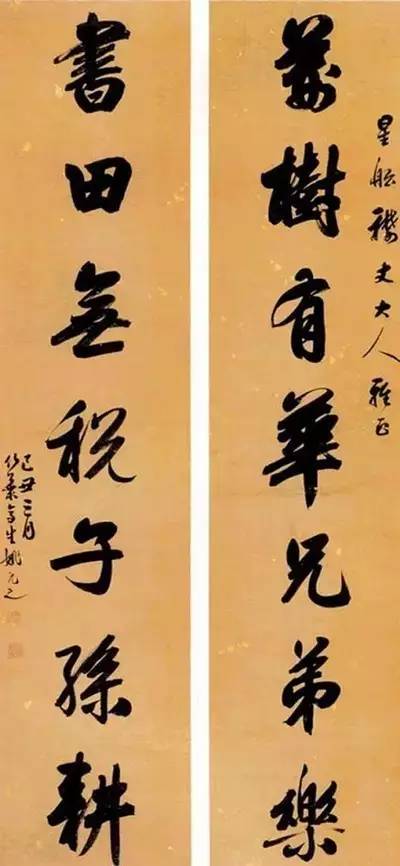 星舩丈大人雅正
荊樹有華兄弟樂
書田無稅子孫耕
己丑三月
竹葉亭生姚元之